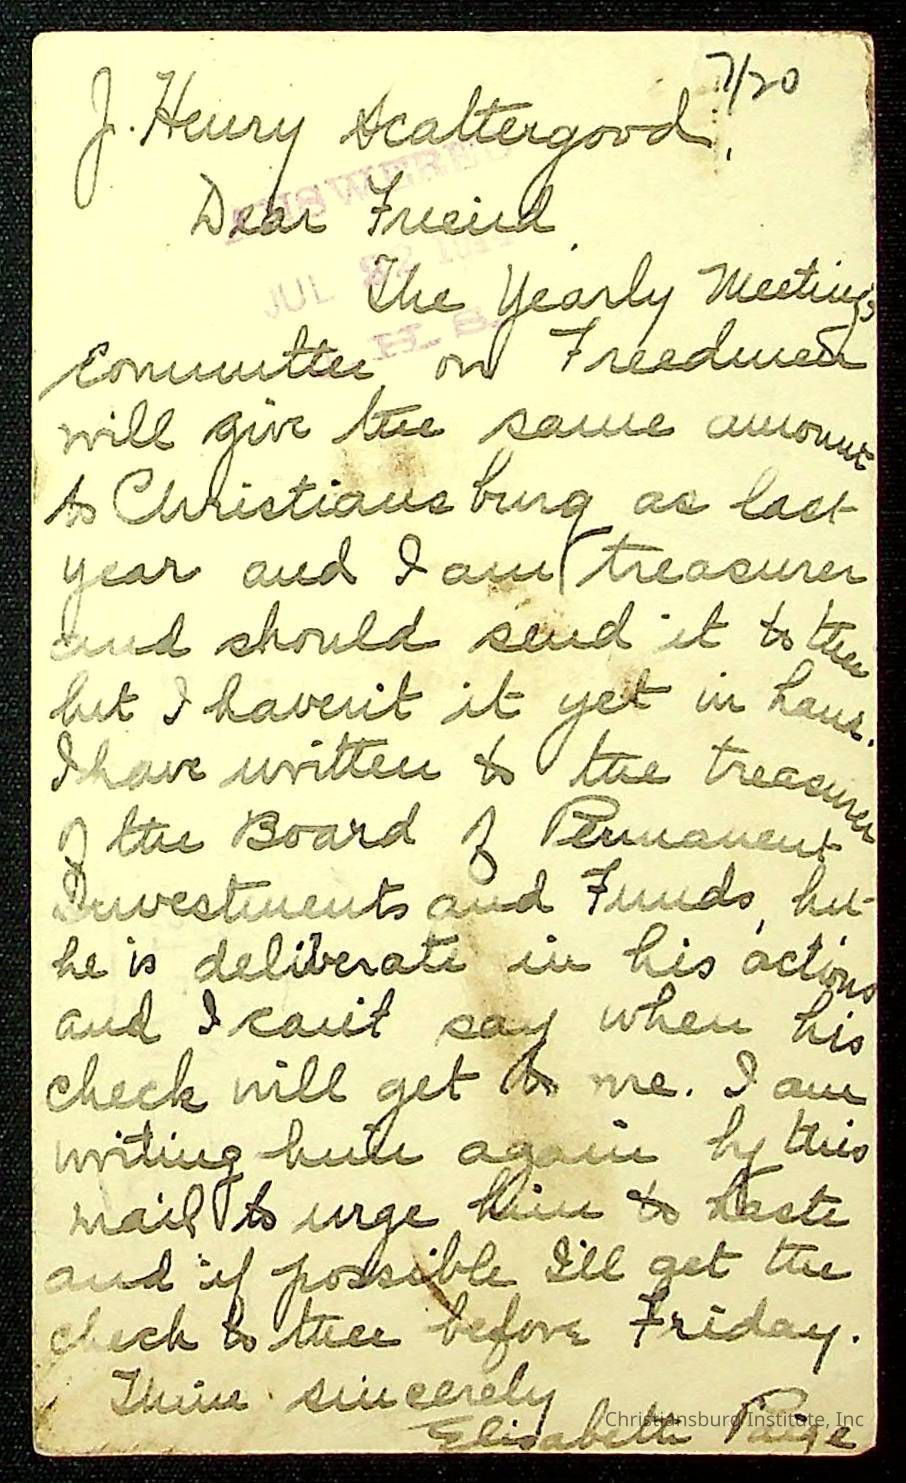 7/20
J. Henry Scattergood,
Dear Freind
ANSWERED
JUL 22
The Yearly Meeting's
Committee on Freedmen
will give the same amount
to Christiansburg as last
year and I am treasurer
and should send it to thee
but I haven't it yet in hand.
I have written to the treasurer
of the Board of Permanent
Investments and Funds, but
he is deliberate in his actions
and I can't say when his
check will get to me. I am
writing him again by this
mail to urge him to haste
and if possible I'll get the
check to thee before Friday.
Thine sincerely
Elisabeth Paige
Christiansburg Institute, Inc